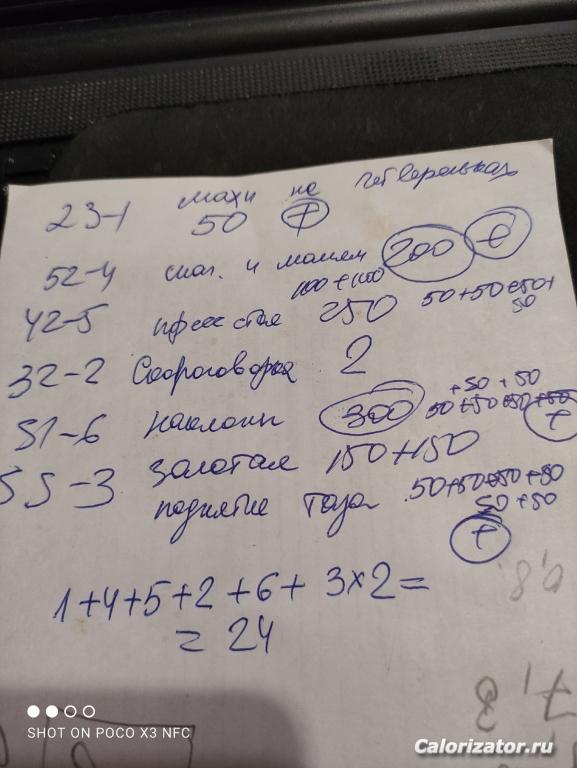 23-1 махи на четвереньках
50 +
52-4 с маляем 200 +
100+100
42-5 пресс стоя 250 50+50+50+
50
32-2 Скороговорка 2
51-6 Наклоны 300 +50 +50
50+50+50+50 +
55-3 Золотая 150+150
поднятие таза 50+50+50+50
50+50
+
1+4+5+2+6+ 3x2=
= 24
0,8
7,8
SHOT ON POCO X3 NFC
Calorizator.ru